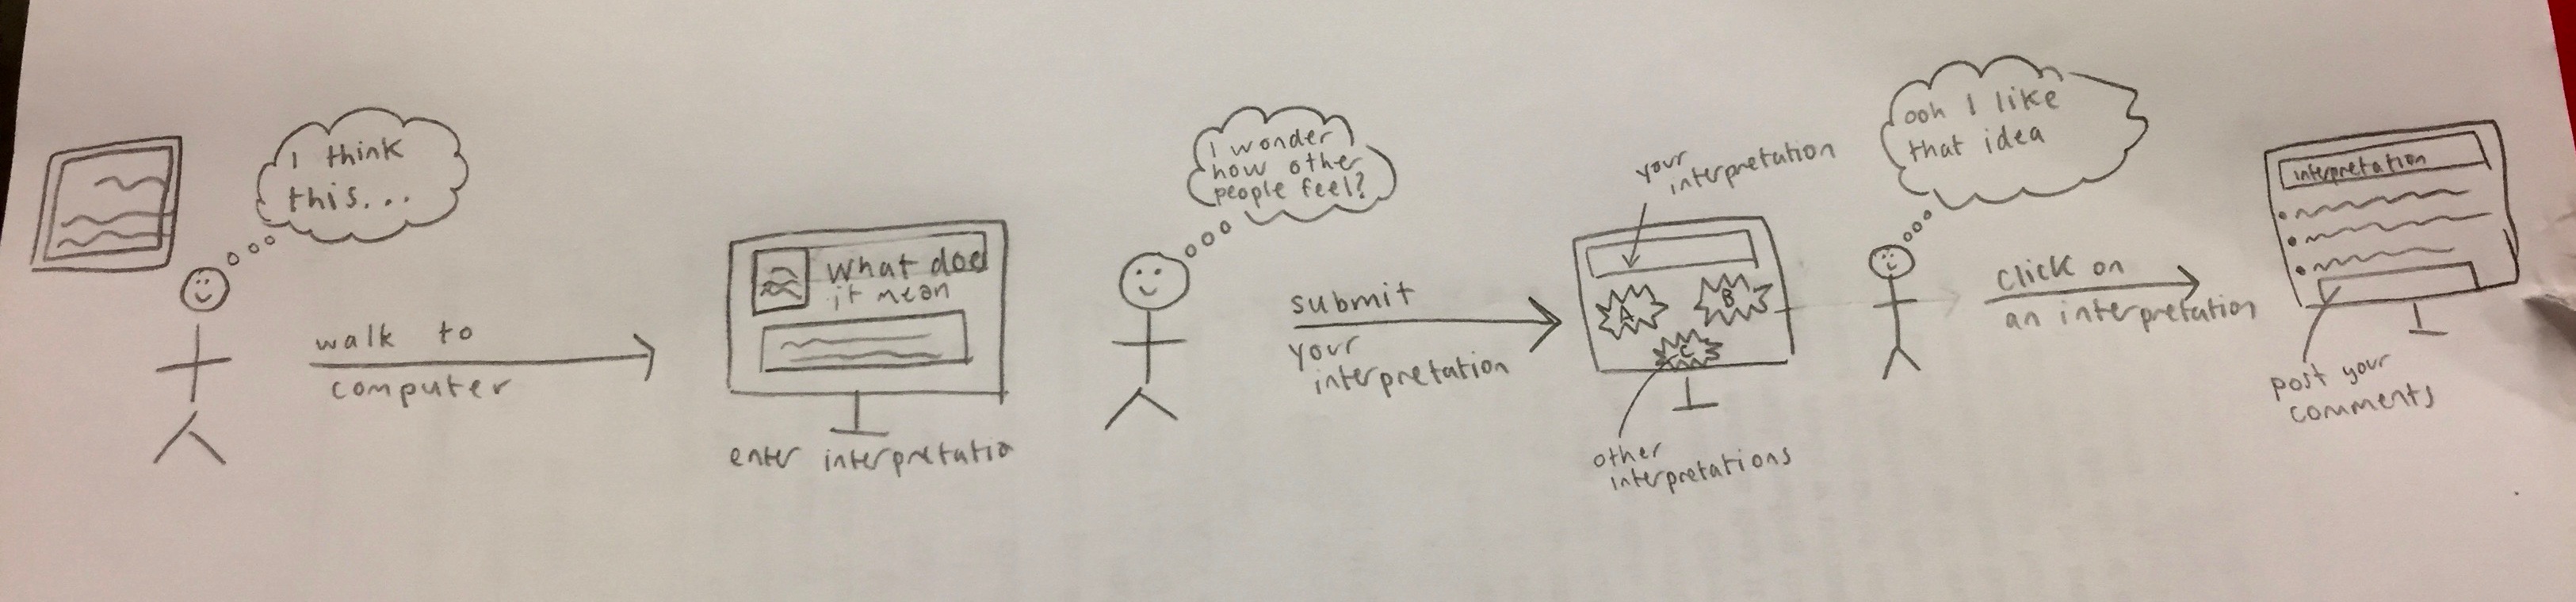 I think
this...
walk to
computer
What does
it mean
enter interpretatio
I wonder
how other
people feel?
submit
your
interpretation
your
interpretation
A
B
C
other
interpretations
ooh I like
that idea
click on
an interpretation
interpretation
post your
comments